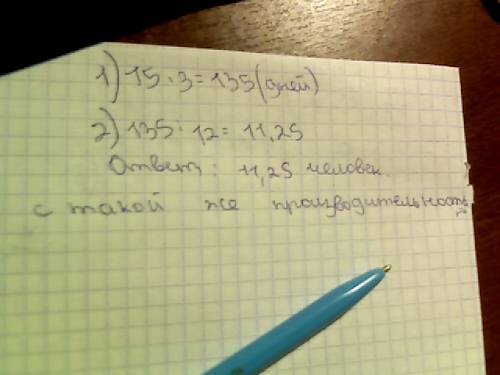 1) 15 · 3 = 135 (дней)
2) 135 : 12 = 11,25
Ответ: 11,25 человек
с такой же производительность